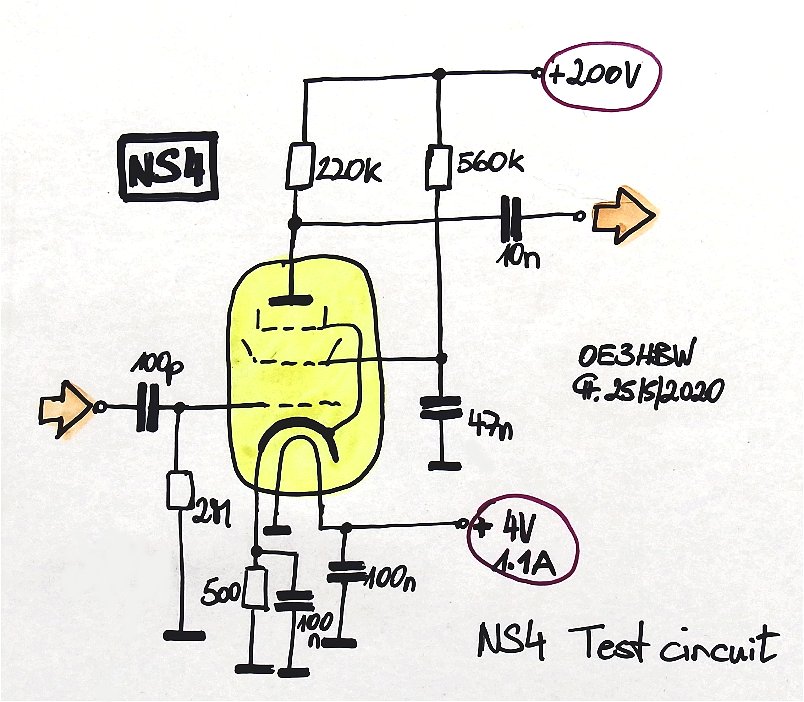 +200V
NS4
220k
560k
10n
100p
OE3HBW
25/5/2020
47n
2M
+ 4V
1.1A
500
100n
100
n
NS4 Test circuit